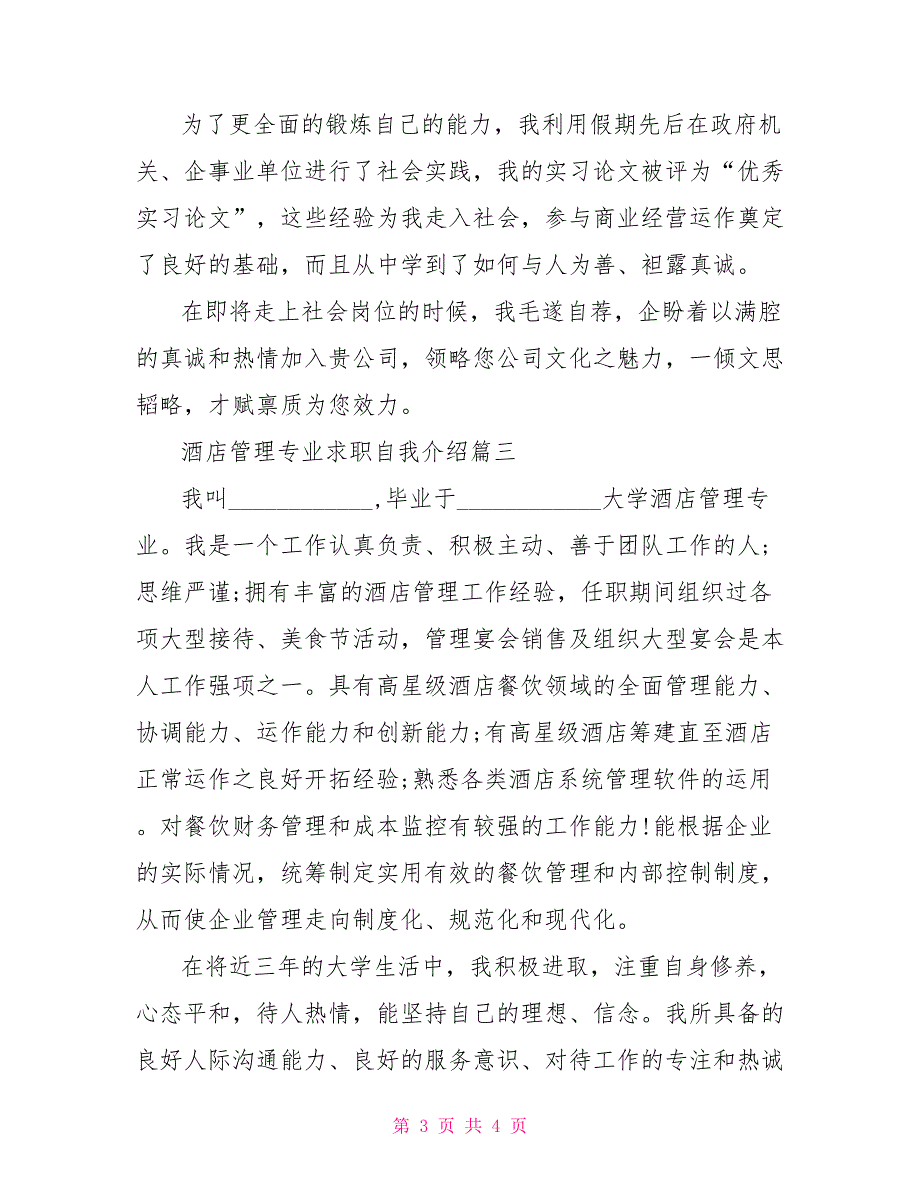 为了更全面的锻炼自己的能力，我利用假期先后在政府机
关、企事业单位进行了社会实践，我的实习论文被评为“优秀
实习论文”，这些经验为我走入社会，参与商业经营运作奠定
了良好的基础，而且从中学到了如何与人为善、袒露真诚。
在即将走上社会岗位的时候，我毛遂自荐，企盼着以满腔
的真诚和热情加入贵公司，领略您公司文化之魅力，一倾文思
韬略，才赋禀质为您效力。
酒店管理专业求职自我介绍篇三
我叫____________,毕业于____________大学酒店管理专
业。我是一个工作认真负责、积极主动、善于团队工作的人;
思维严谨;拥有丰富的酒店管理工作经验，任职期间组织过各
项大型接待、美食节活动，管理宴会销售及组织大型宴会是本
人工作强项之一。具有高星级酒店餐饮领域的全面管理能力、
协调能力、运作能力和创新能力;有高星级酒店筹建直至酒店
正常运作之良好开拓经验;熟悉各类酒店系统管理软件的运用
。对餐饮财务管理和成本监控有较强的工作能力!能根据企业
的实际情况，统筹制定实用有效的餐饮管理和内部控制制度，
从而使企业管理走向制度化、规范化和现代化。
在将近三年的大学生活中，我积极进取，注重自身修养，
心态平和，待人热情，能坚持自己的理想、信念。我所具备的
良好人际沟通能力、良好的服务意识、对待工作的专注和热诚
第 3 页 共 4 页